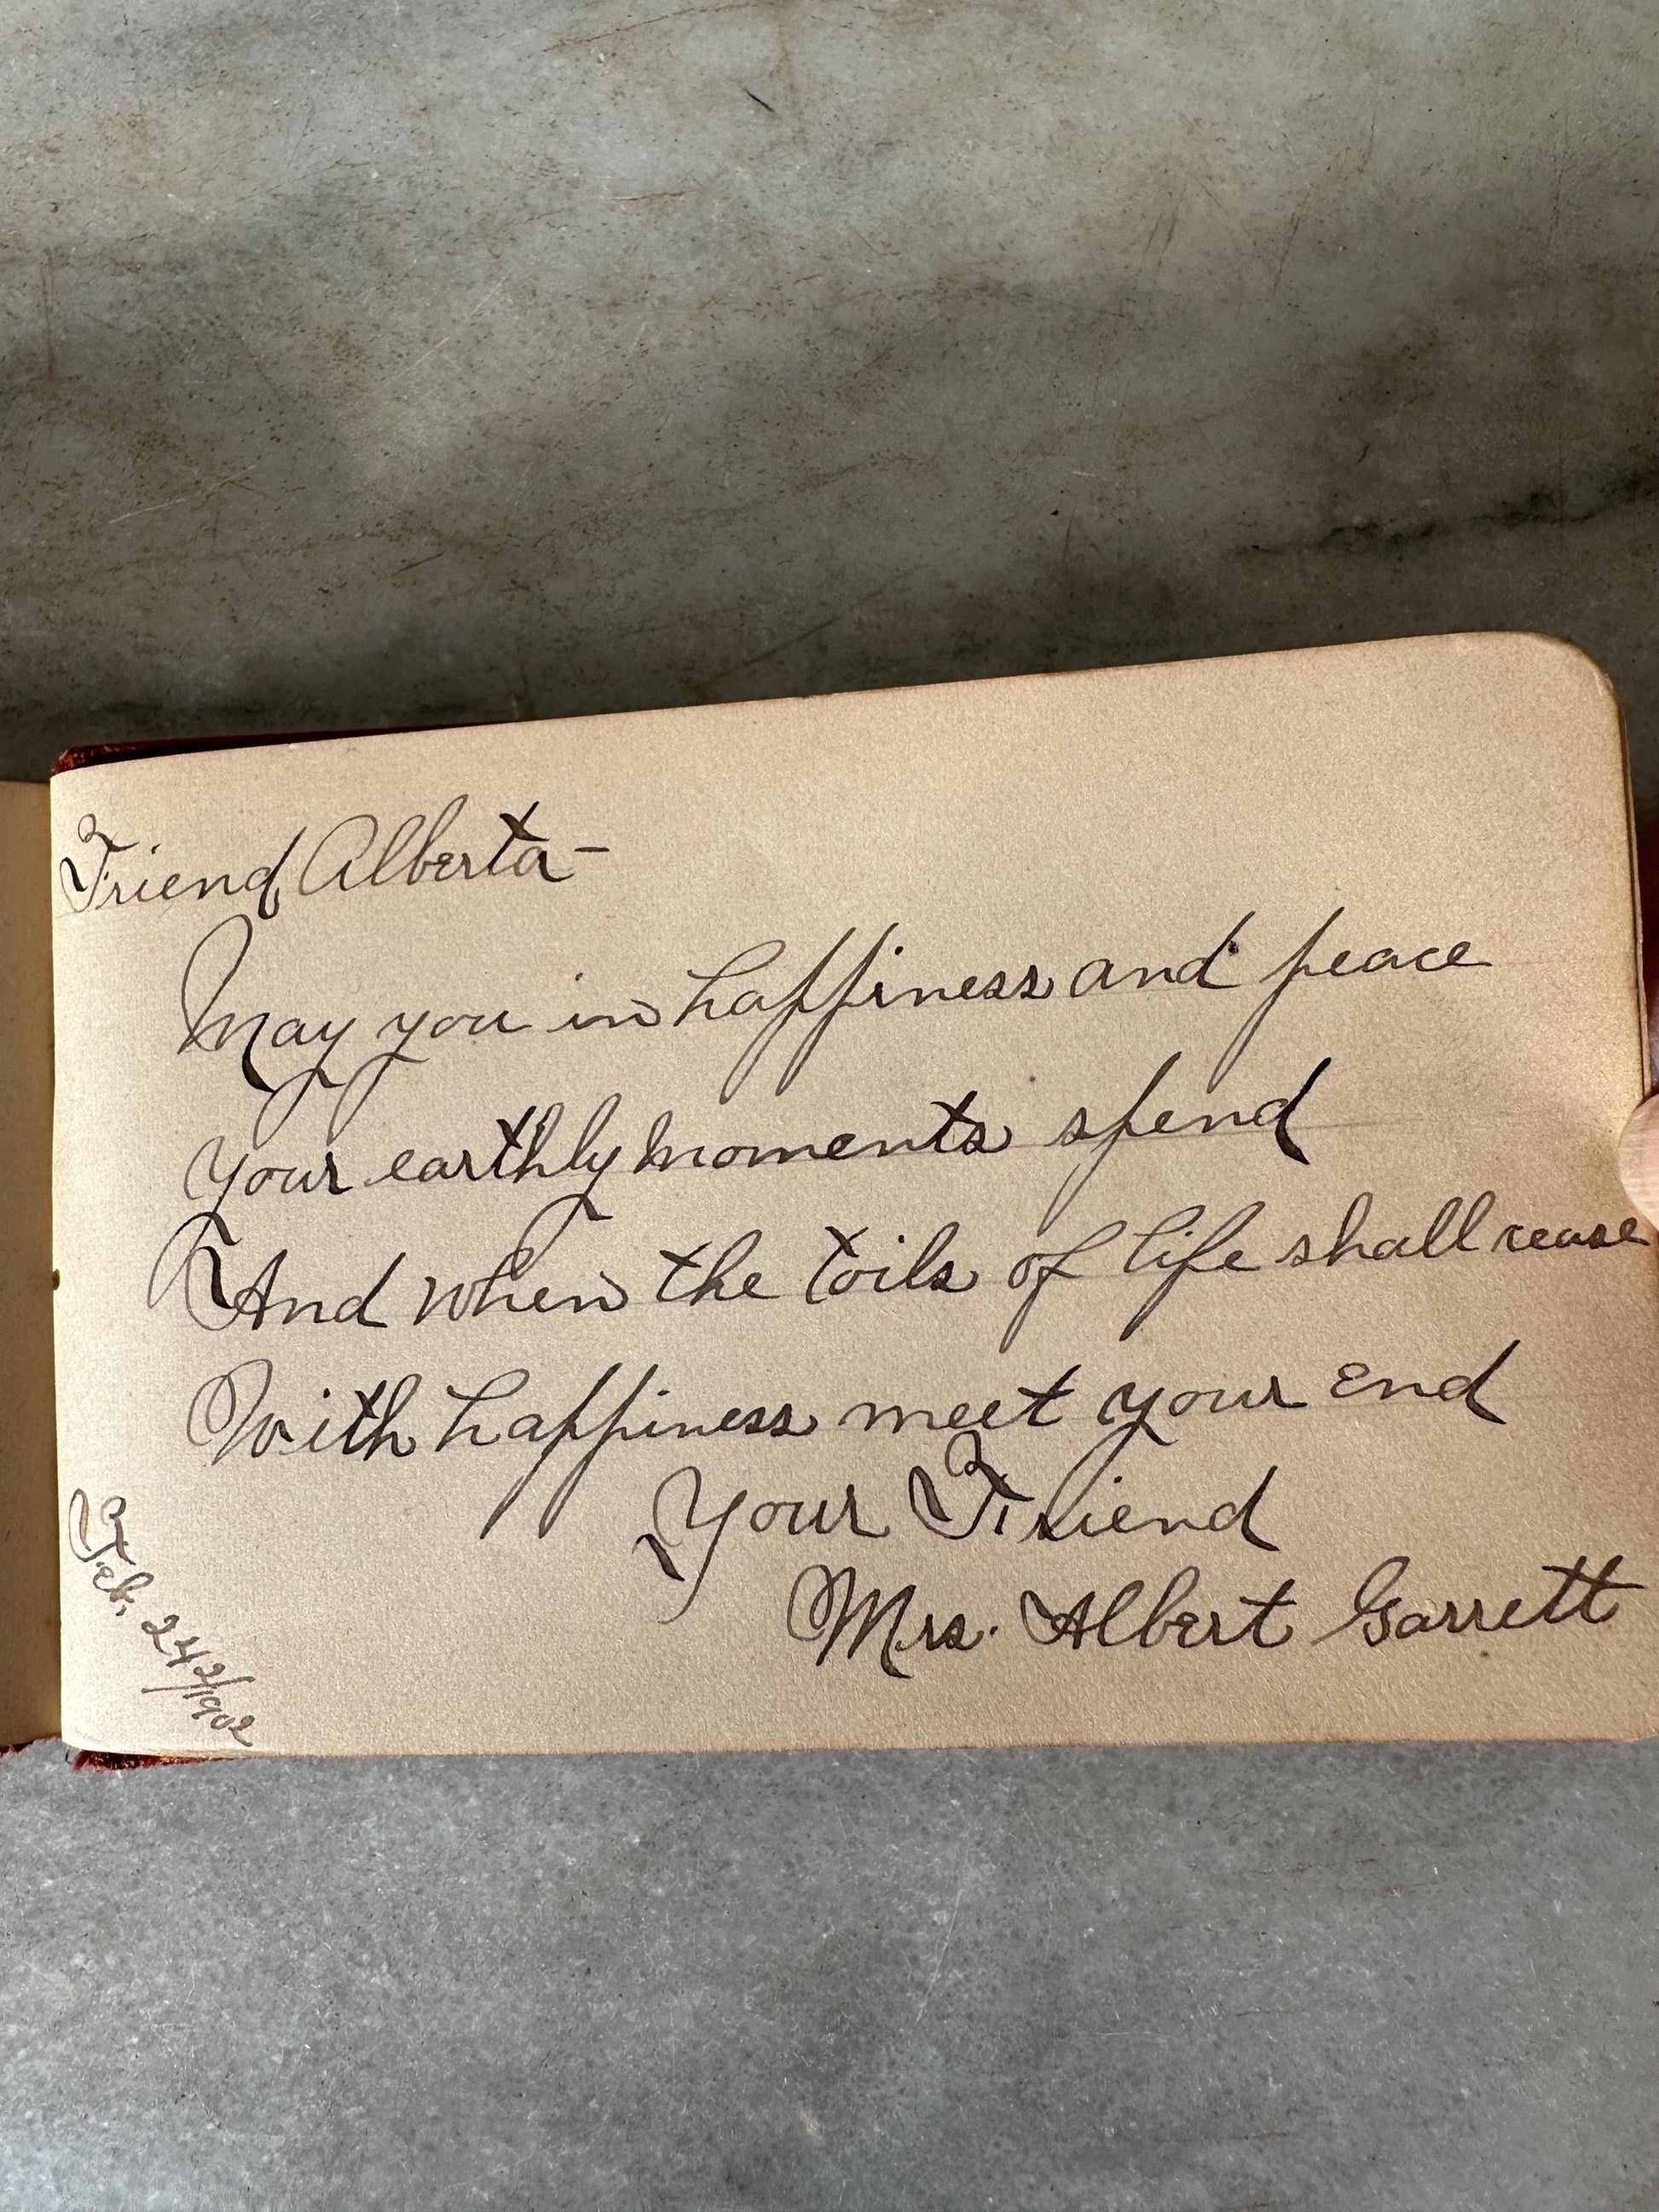 Friend, Alberta-
May you in happiness and peace
Your earthly moments spend
And when the toils of life shall cease
With happiness meet your end
Your Friend
Mrs. Albert Garrett
Feb, 24 2/1902